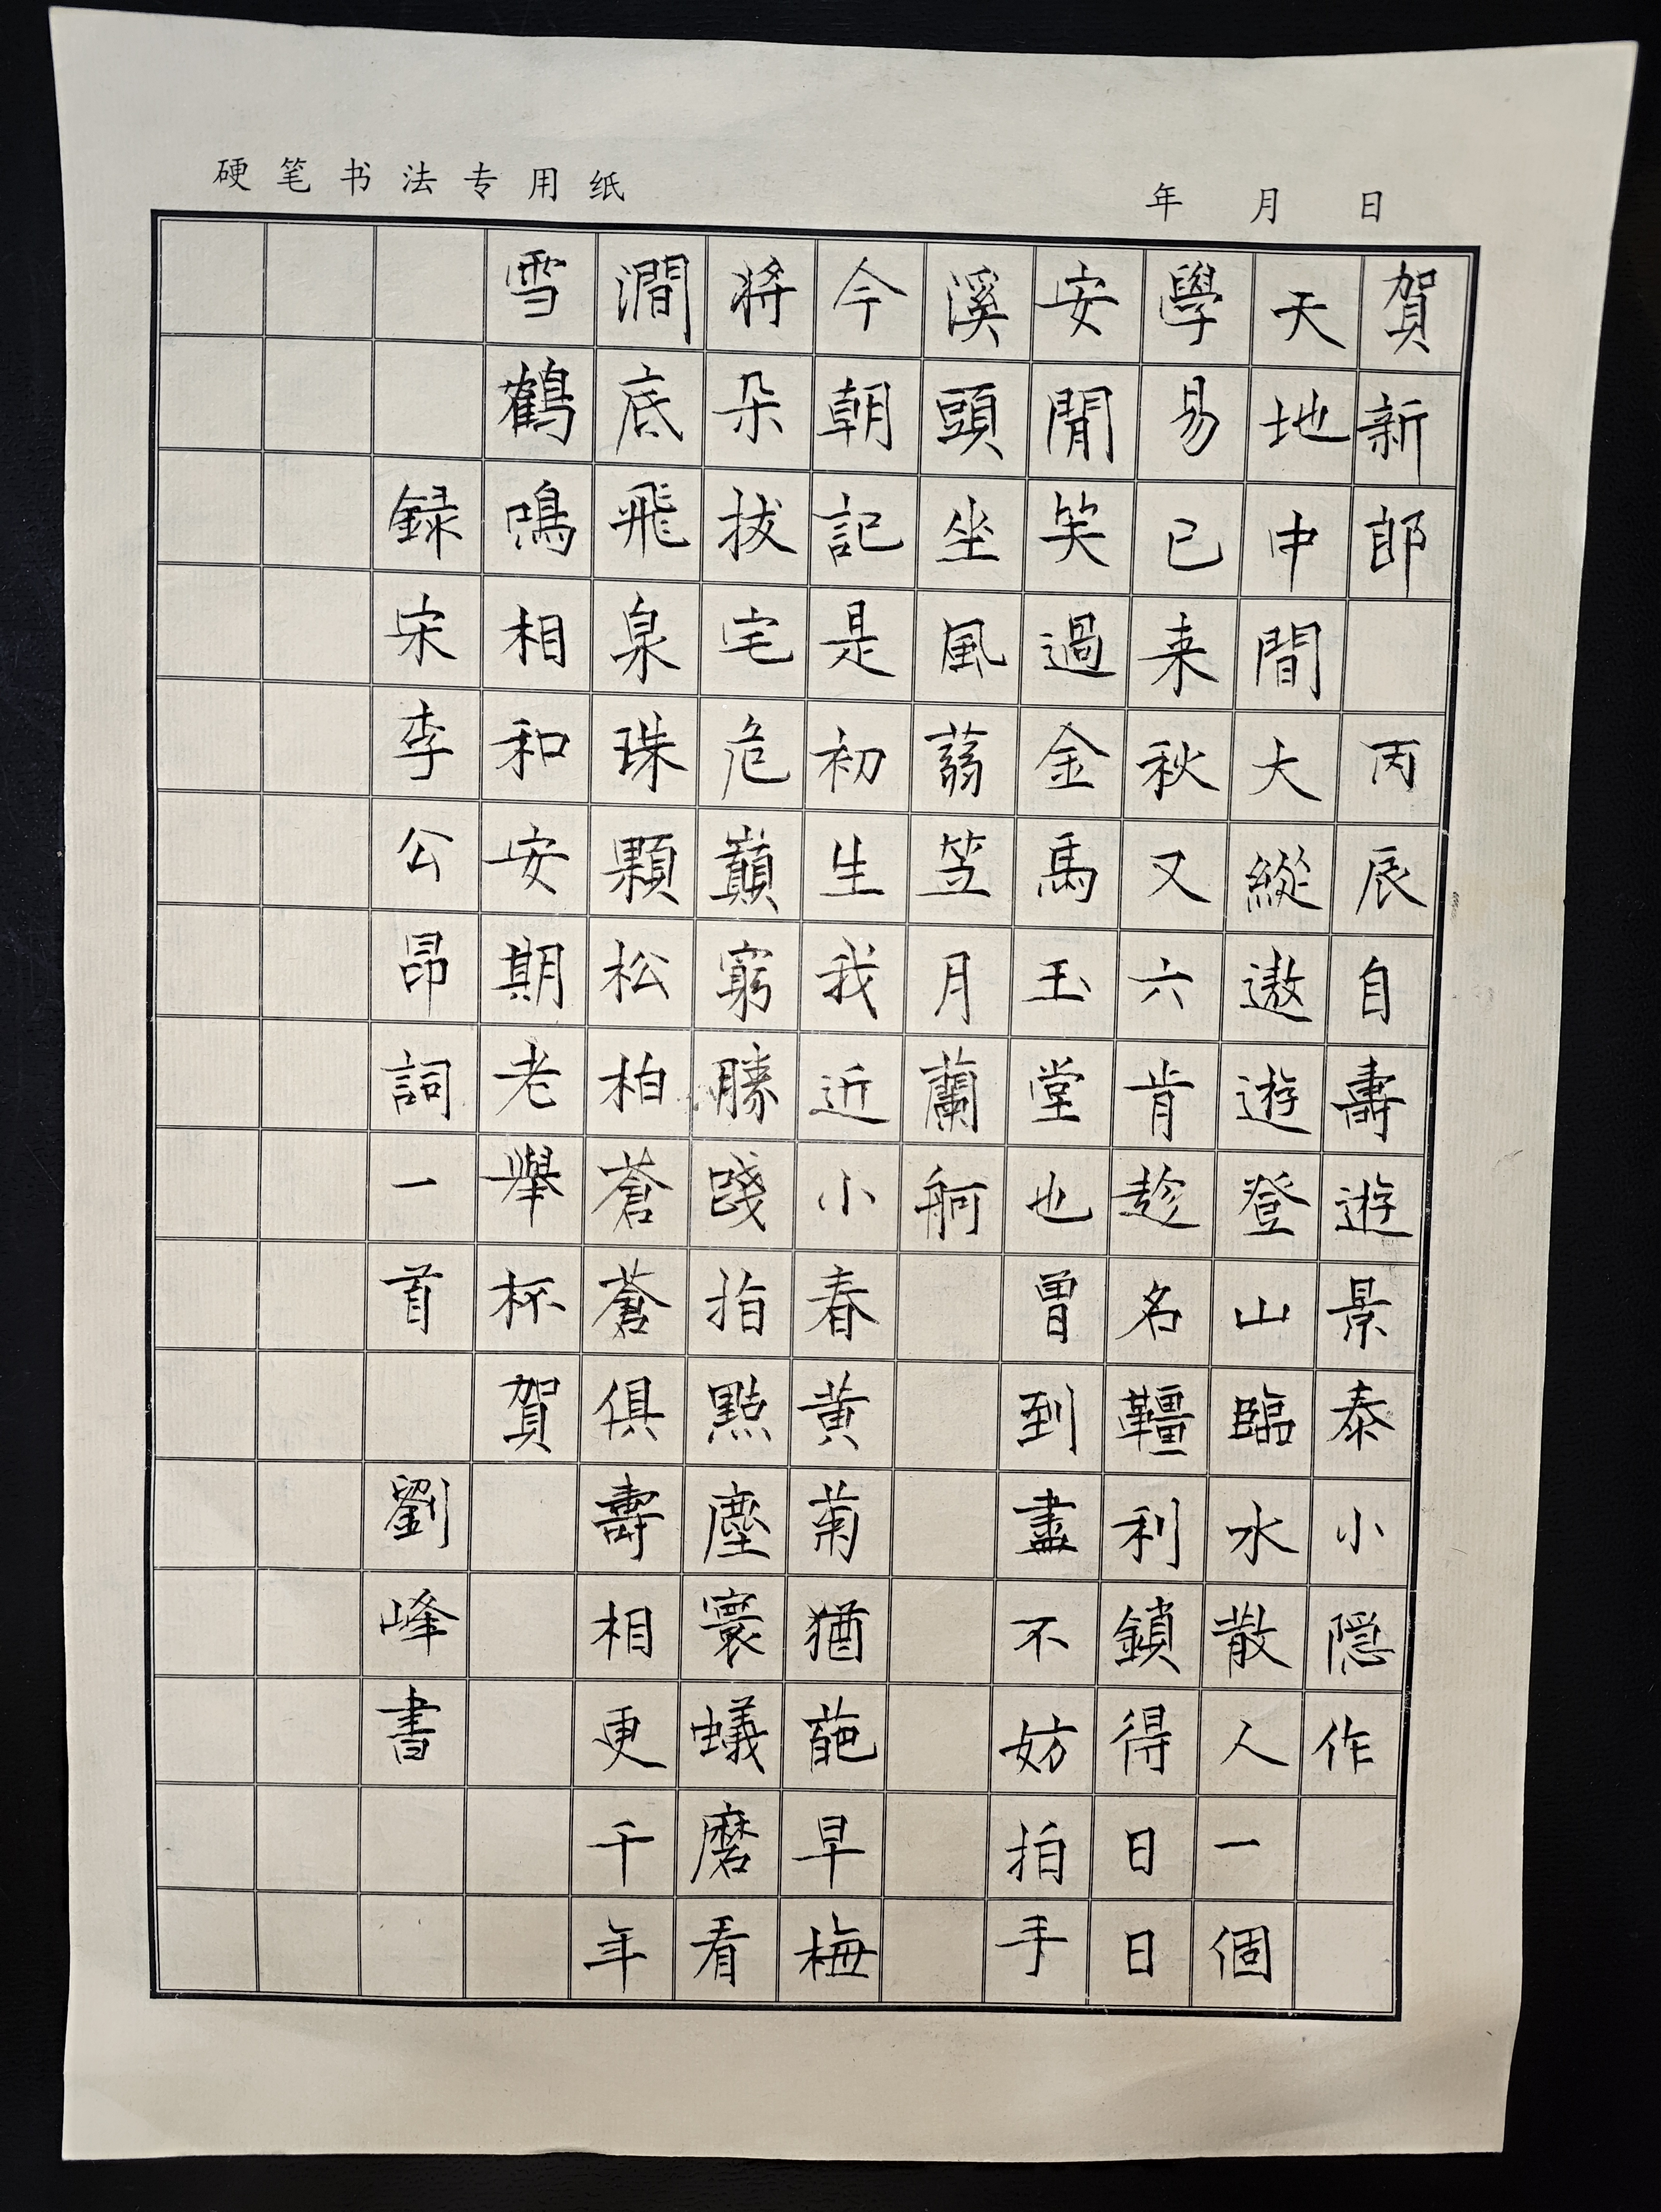 硬笔书法专用纸
年 月 日
賀新郎 丙辰自壽遊景泰小隠作
天地中間大縱遨遊登山臨水散人一個
學易已来秋又六肯趁名韁利鎖得日日
安閒笑過金馬玉堂也曾到盡不妨拍手
溪頭坐風蒻笠月蘭舸
今朝記是初生我近小春黄菊猶葩早梅
將朵拔宅危巔窮勝踐指點塵寰蟻磨看
澗底飛泉珠顆松柏蒼蒼俱壽相更千年
雪鶴鳴相和安期老舉杯賀
録宋李公昂詞一首 劉峰書